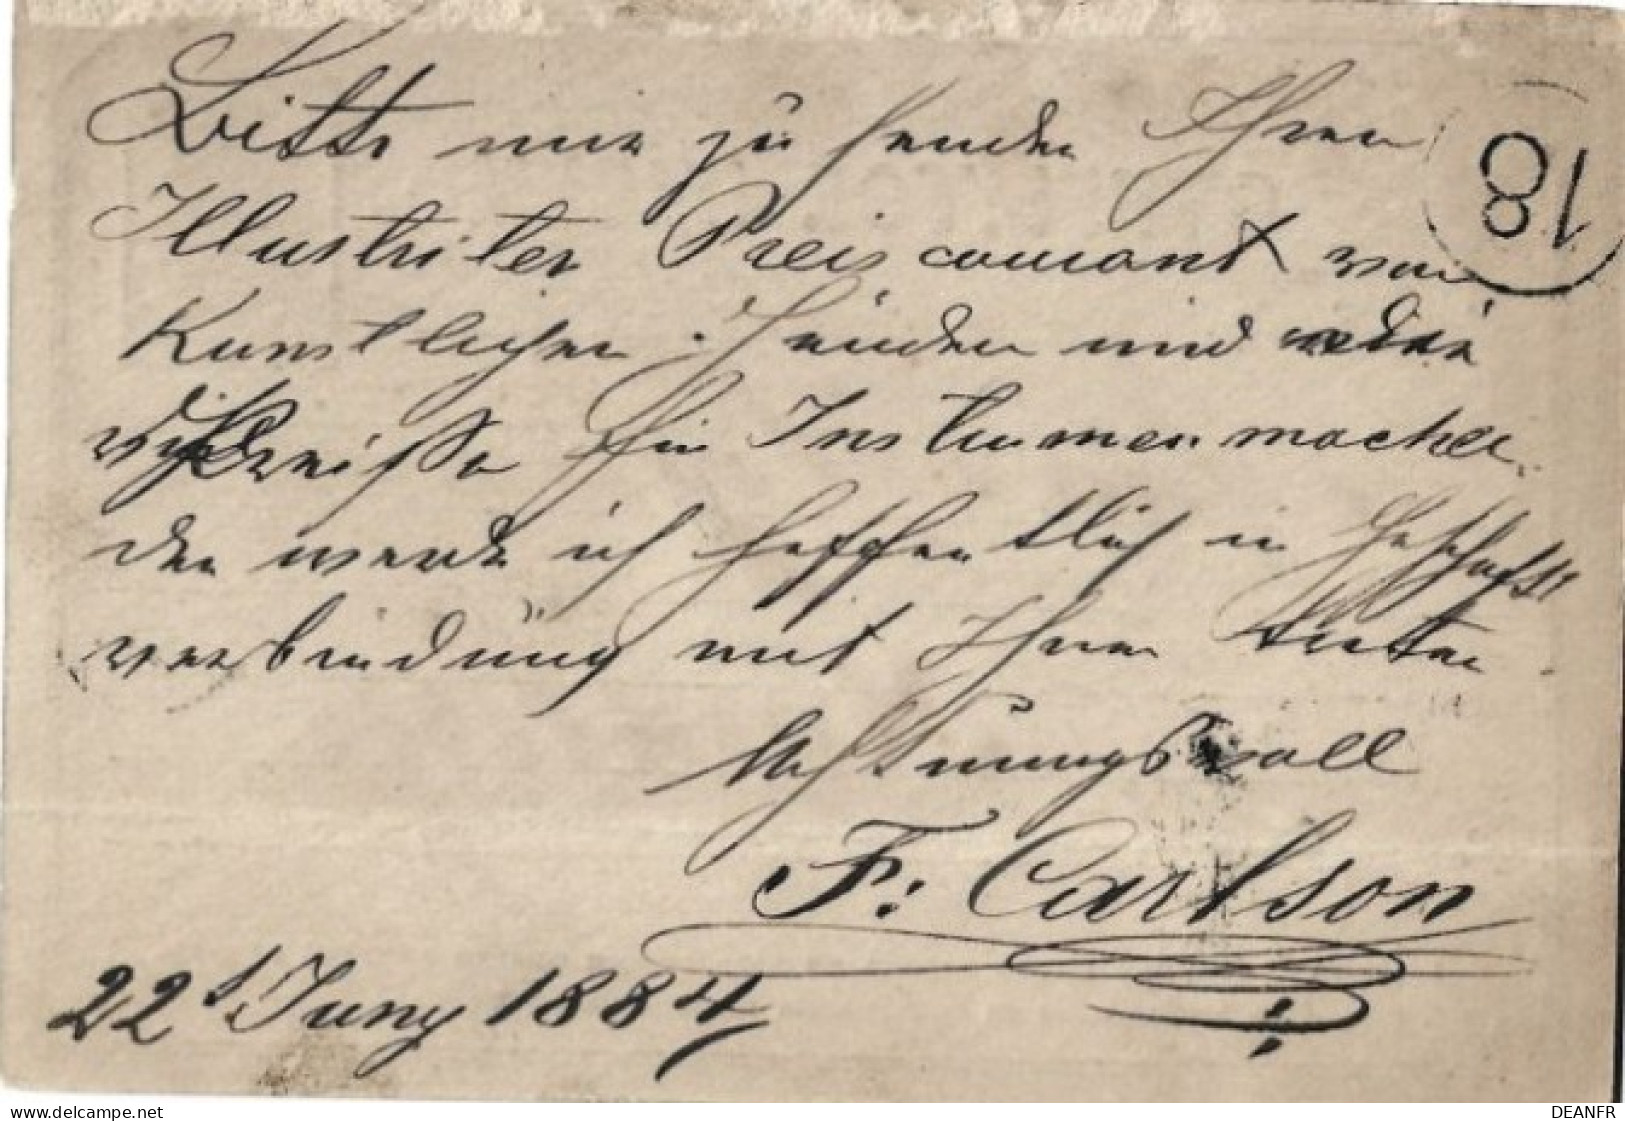 Bitte mir zu senden Ihren
18
Illustrirten Preiscourant von
Kunstlichen Händen und
für Instrumenmacher
den werde ich hoffentlich in Geschafts
verbindung mit Ihnen tretten
Achtungsvoll
F. Carlson
22 Juny 1884
www.delcampe.net
DEANFR